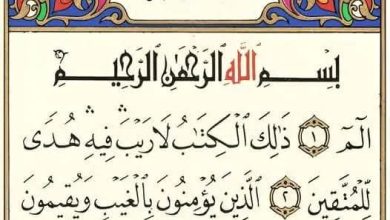 بِسْمِ اللَّهِ الرَّحْمَٰنِ الرَّحِيمِ
الٓمٓ ١ ذَٰلِكَ الْكِتَابُ لَا رَيْبَ ۛ فِيهِ ۛ هُدًى
لِّلْمُتَّقِينَ ٢ الَّذِينَ يُؤْمِنُونَ بِالْغَيْبِ وَيُقِيمُونَ